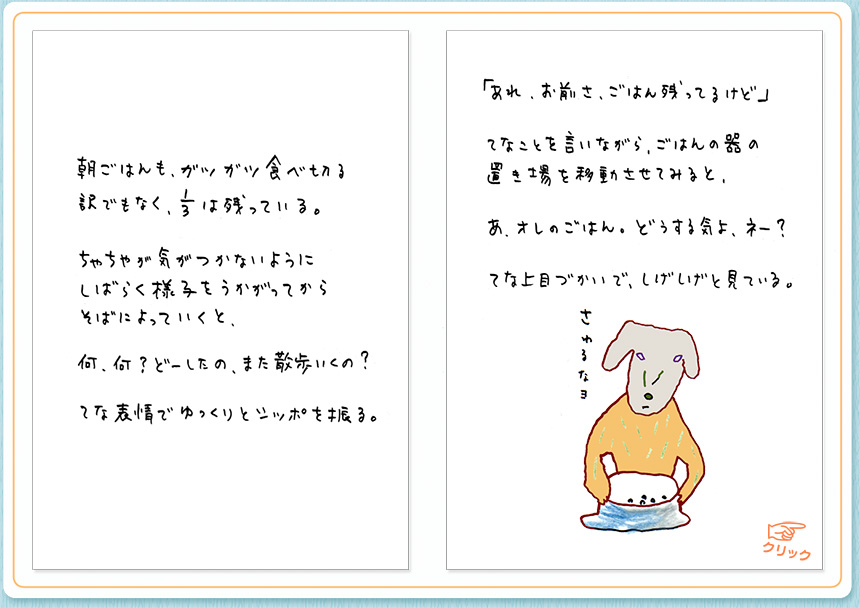 朝ごはんも、ガツガツ食べ切る
訳でもなく、1/3は残っている。
ちゃちゃが気がつかないように
しばらく様子をうかがってから
そばによっていくと、
何、何?どーしたの、また散歩いくの?
てな表情でゆっくりとシッポを振る。
「あれ、お前さ、ごはん残ってるけど」
てなことを言いながら、ごはんの器の
置き場を移動させてみると、
あ、オレのごはん。どうする気よ、ネー?
てな上目づかいで、しげしげと見ている。
さわるなヨ
クリック